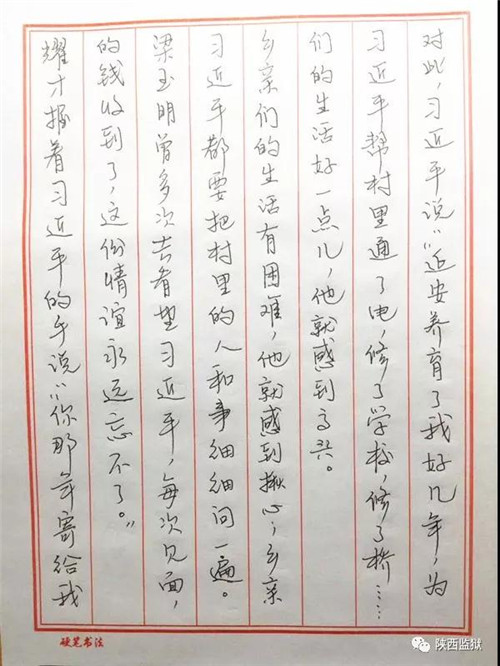 耀才握着习近平的手说:“你那年寄给我
的钱收到了,这份情谊永远忘不了。”
梁玉明曾多次去看望习近平,每次见面,
习近平都要把村里的人和事细细问一遍。
乡亲们的生活有困难,他就感到揪心;乡亲
们的生活好一点儿,他就感到高兴。
习近平帮村里通了电,修了学校,修了桥……
对此,习近平说:“延安养育了我好几年,为
硬笔书法
陕西监狱